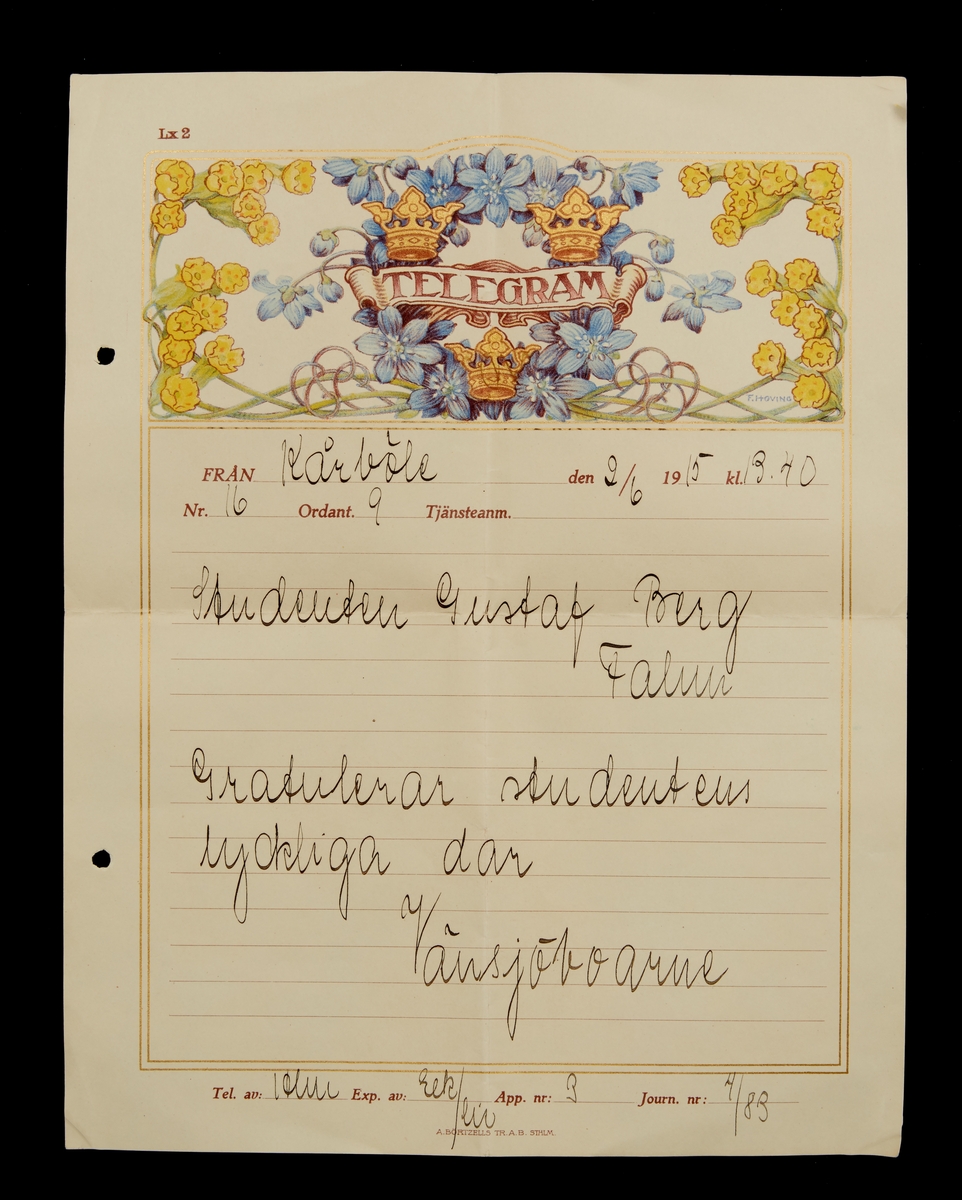 Lx 2
TELEGRAM
F. HOVING
FRÅN Kårböle den 2/6 1915 kl. 13.40
Nr. 16 Ordant. 9 Tjänsteanm.
Studenten Gustaf Berg
Falun
Gratulerar studentens
lyckliga dar
Vänsjöboarne
Tel. av: Exp. av: Eek/ App. nr: 3 Journ. nr: 4/83
A. BÖRTZELLS TR. A. B. STHLM.